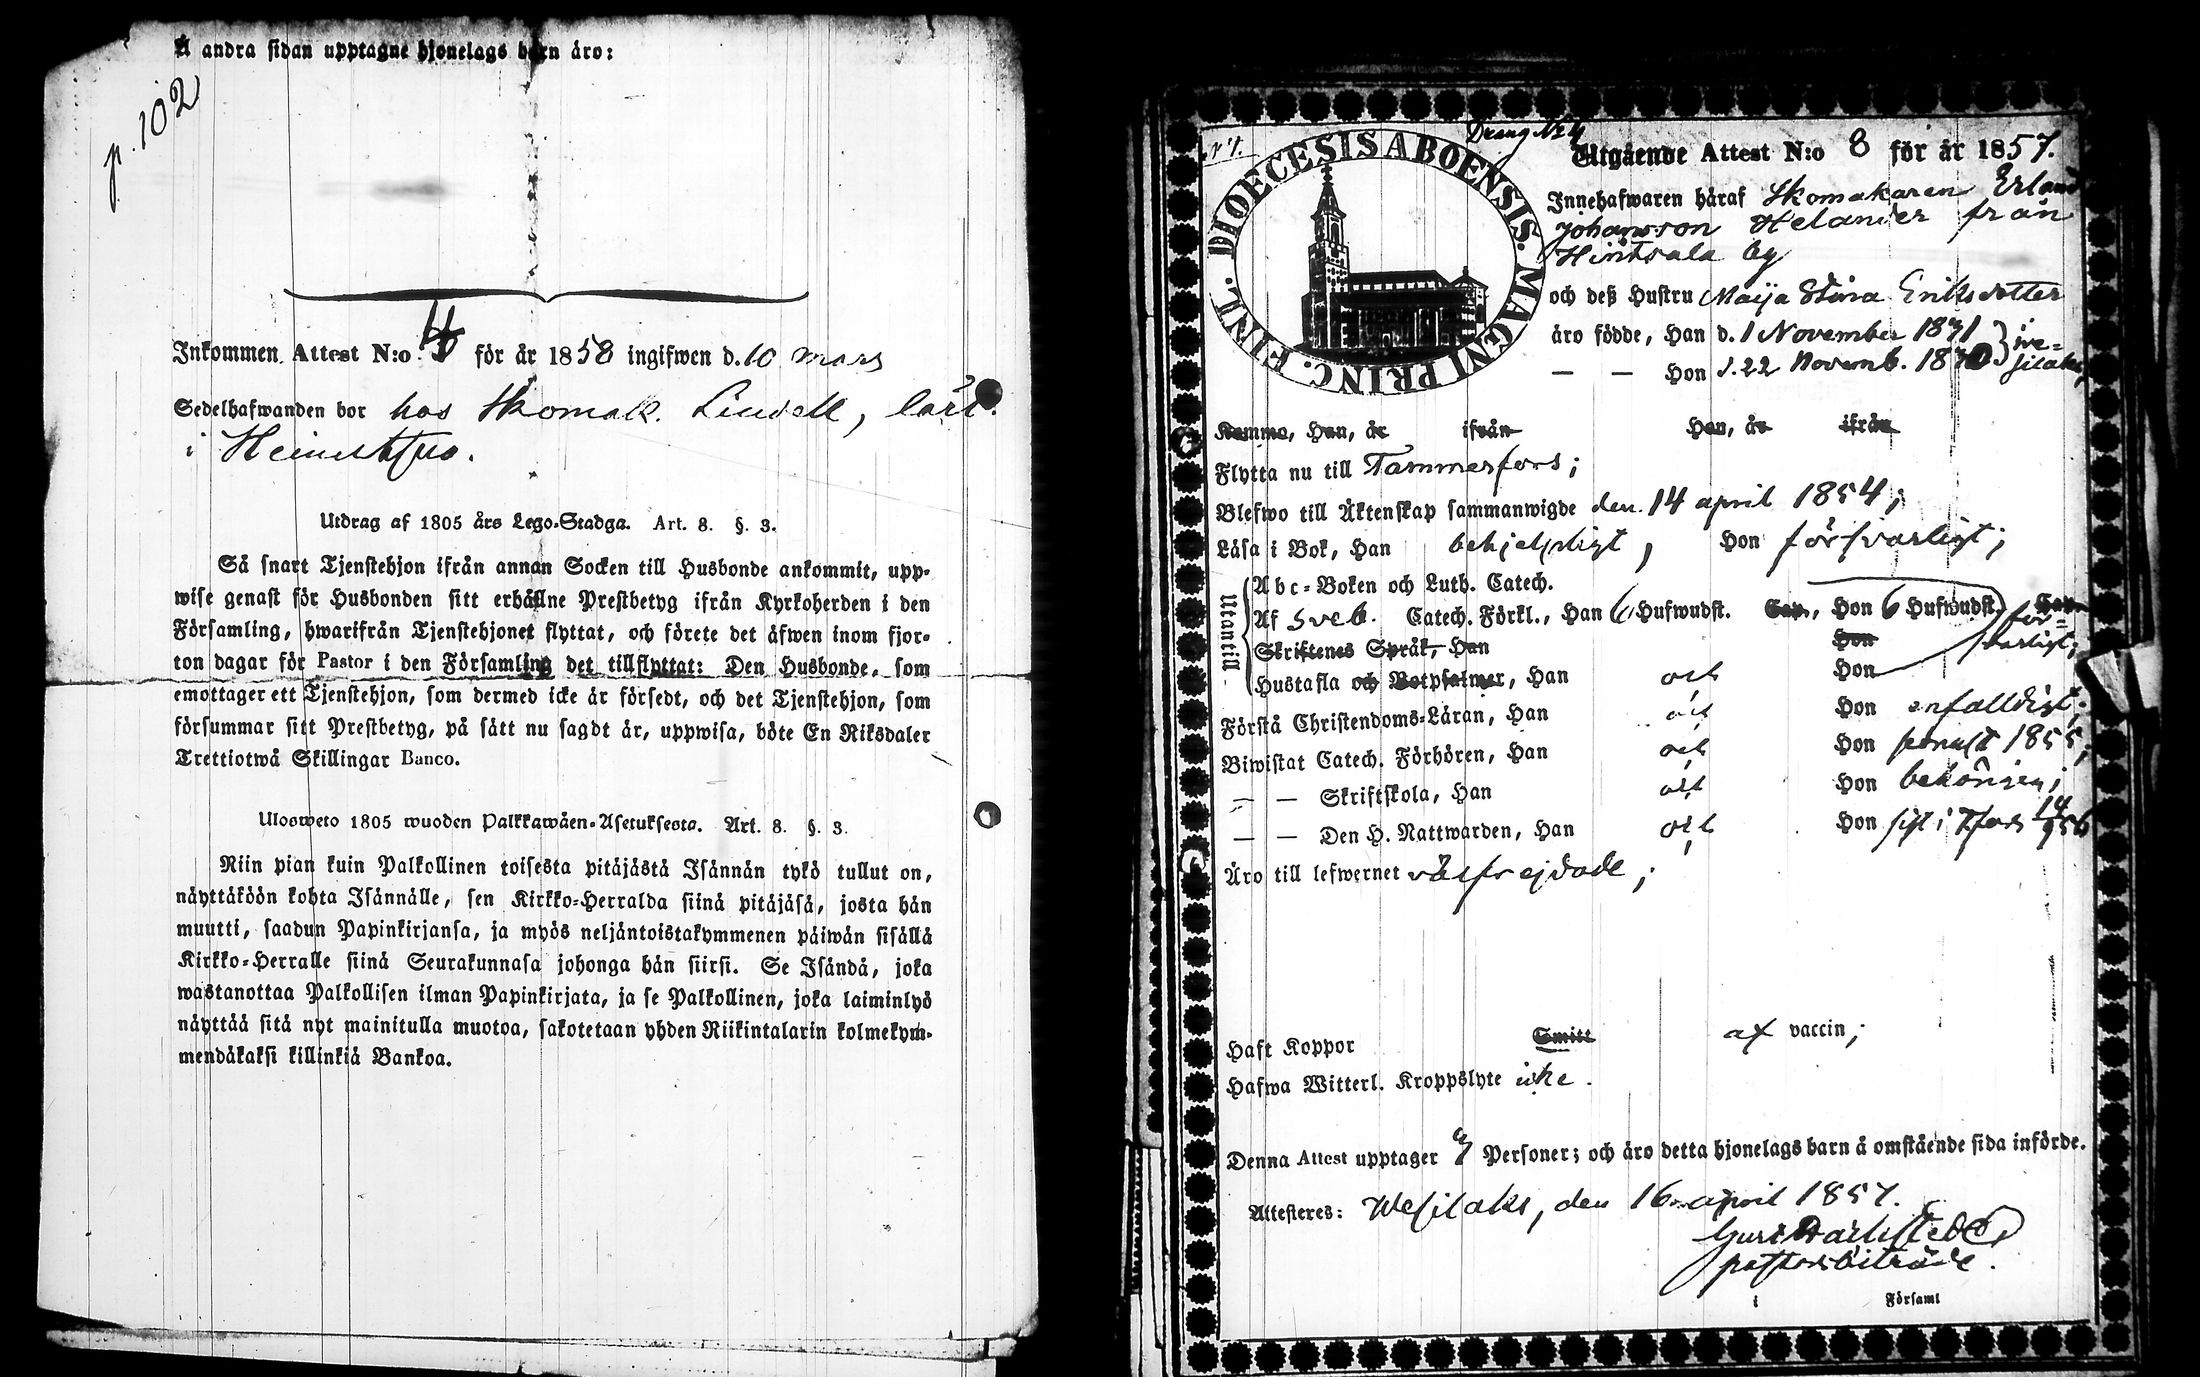 Å andra sidan upptagne hjonelags barn äro:
p. 102
Inkommen Attest N:o 4 för år 1858 ingifwen d. 10 mars
Sedelhafwanden bor hos Skomak. Lindell,
i
Utdrag af 1805 års Lego-Stadga. Art. 8. §. 3.
Så snart Tjenstehjon ifrån annan Socken till Husbonde ankommit, upp-
wise genast för Husbonden sitt erhållne Prestbetyg ifrån Kyrkoherden i den
Församling, hwarifrån Tjenstehjonet flyttat, och förete det äfwen inom fjor-
ton dagar för Pastor i den Församling det tillflyttat: Den Husbonde, som
emottager ett Tjenstehjon, som dermed icke är försedt, och det Tjenstehjon, som
försummar sitt Prestbetyg, på sätt nu sagdt är, uppwisa, böte En Riksdaler
Trettiotwå Skillingar Banco.
Ulosweto 1805 wuoden Palkkawäen-Asetuksesta. Art. 8. §. 3.
Niin pian kuin Palkollinen toisesta pitäjästä Isännän tykö tullut on,
näyttäköön kohta Isännälle, sen Kirkko-Herralda siinä pitäjäsä, josta hän
muutti, saadun Papinkirjansa, ja myös neljäntoistakymmenen päiwän sisällä
Kirkko-Herralle siinä Seurakunnasa johonga hän siirsi. Se Isändä, joka
wastanottaa Palkollisen ilman Papinkirjata, ja se Palkollinen, joka laiminlyö
näyttää sitä nyt mainitulla muotoa, sakotetaan yhden Riikintalarin kolmekym-
mendäkaksi killinkiä Bankoa.
DIOECESIS ABOENSIS. MAGNI PRINC. FINL.
Utgående Attest N:o 8 för år 1857.
Innehafwaren häraf Skomakaren Erland
Johansson Helander från
Hintsala by
och deß Hustru Maija Stina Eriksdotter
äro födde, Han d. 1 November 1831 i We-
— — Hon d. 22 Novemb. 1830 silaks,
Komma, Han, år ifrån Hon, år ifrån
Flytta nu till Tammerfors;
Blefwo till Äktenskap sammanwigde den 14 april 1854;
Läsa i Bok, Han behjelpligt, Hon försvarligt;
Utantill
Abc-Boken och Luth. Catech.
Af Sveb. Catech. Förkl., Han 6 Hufwudst. Cap., Hon 6 Hufwudst. Cap. för-
Skriftenes Språk, Han Hon svarligt;
Hustafla och Botpsalmer, Han och Hon
Förstå Christendoms-Läran, Han och Hon enfalldigt;
Biwistat Catech. Förhören, Han och Hon senast 1855;
— — Skriftskola, Han och Hon behörigen;
— — Den H. Nattwarden, Han och Hon sist i Tfors 14/9 56
Äro till lefwernet välfrejdade;
Haft Koppor Smitt af vaccin;
Hafwa Witterl. Kroppslyte icke.
Denna Attest upptager 2 Personer; och äro detta hjonelags barn å omstående sida införde.
Attesteres: Wesilaks, den 16 april 1857.
pastorsbiträde.
i Församl